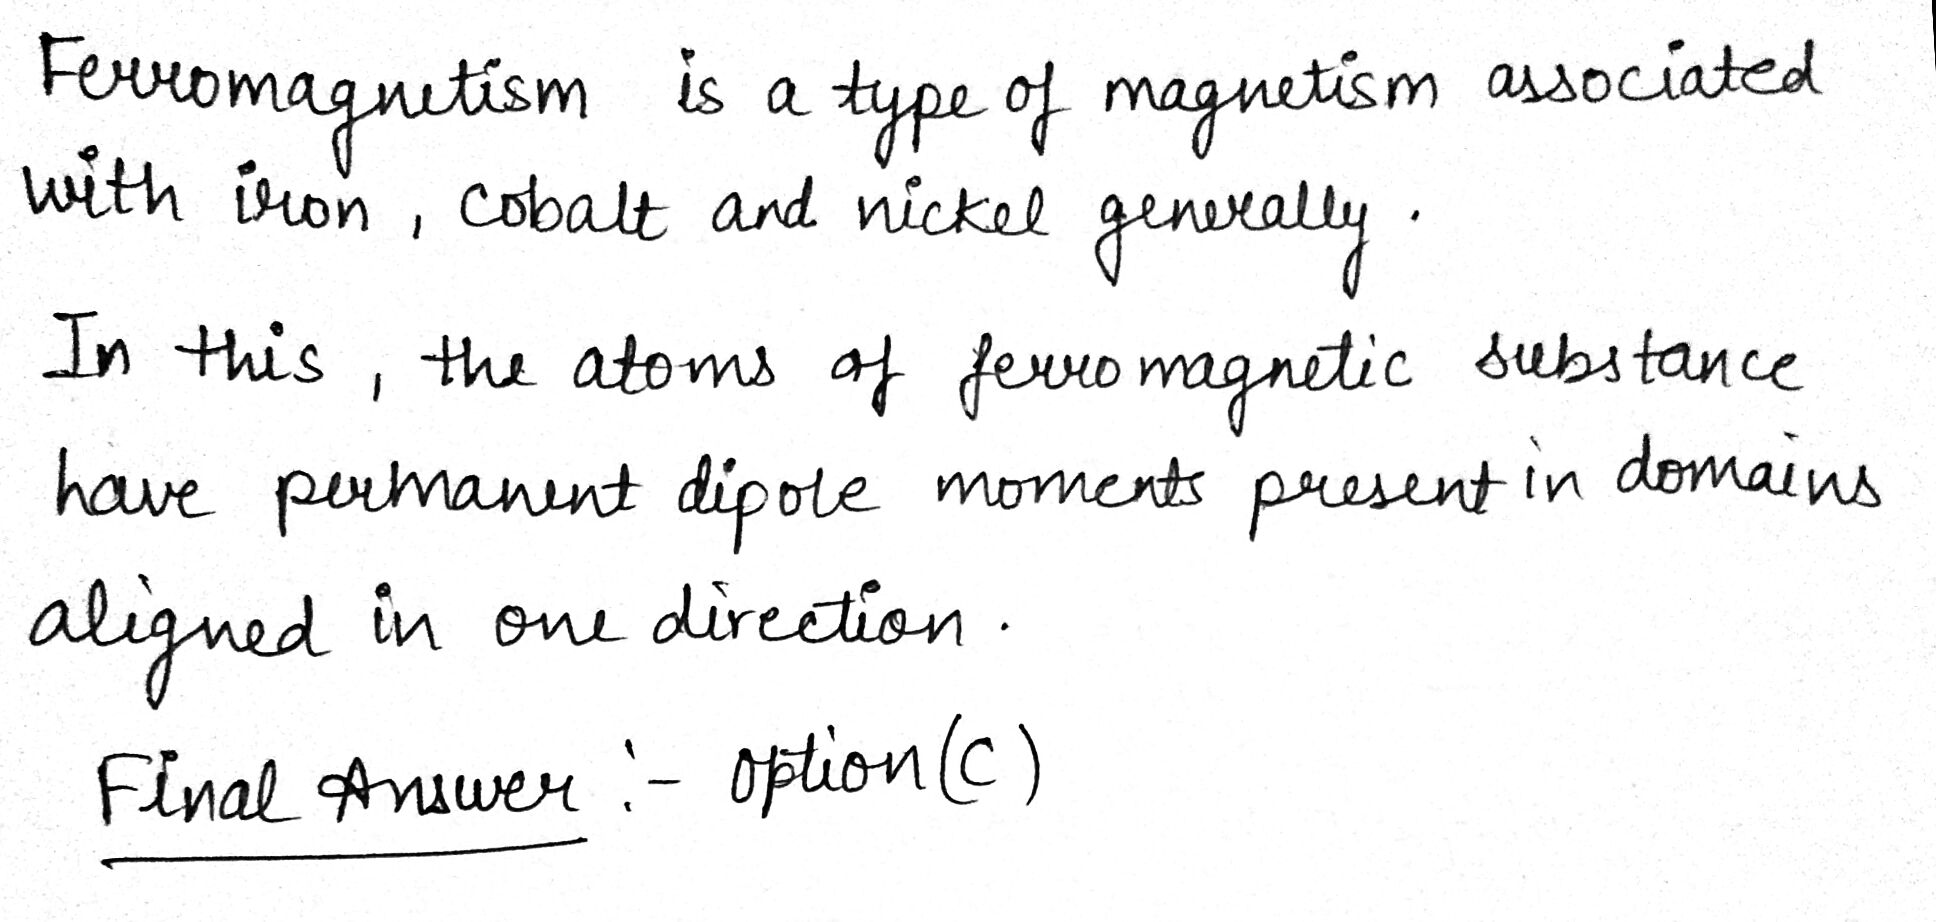 Ferromagnetism is a type of magnetism associated
with iron, cobalt and nickel generally.
In this, the atoms of ferromagnetic substance
have permanent dipole moments present in domains
aligned in one direction.
Final Answer :- option (C)